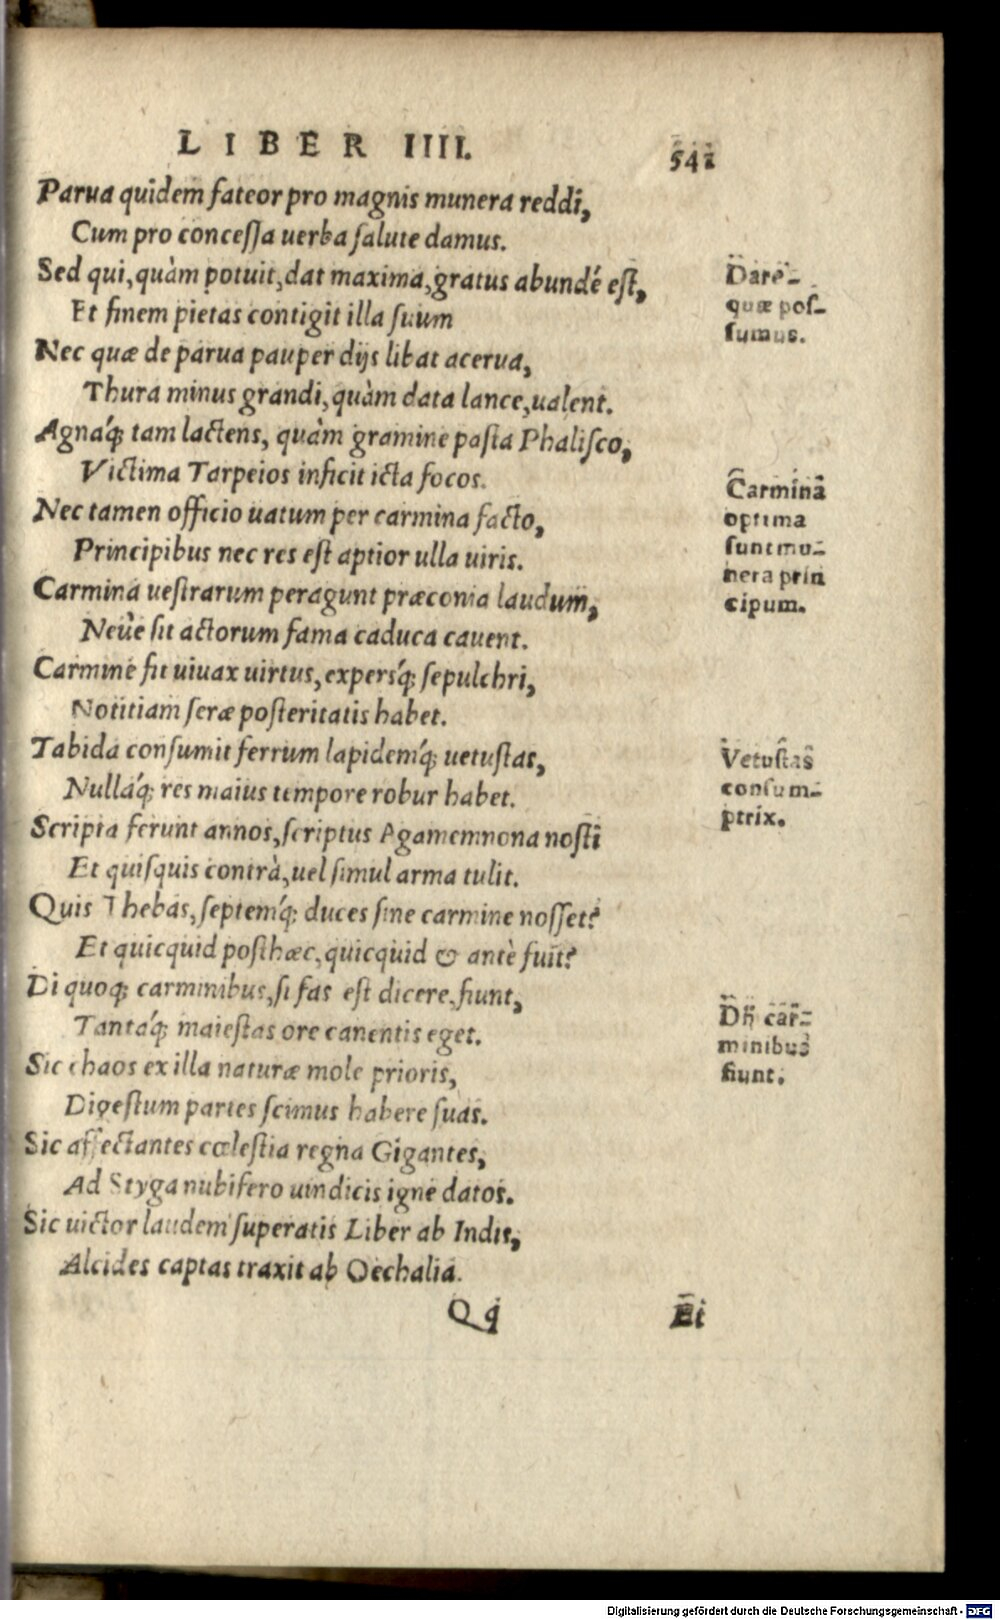 LIBER IIII. 541
Parua quidem fateor pro magnis munera reddi,
Cum pro concessa uerba salute damus.
Sed qui, quàm potuit, dat maxima, gratus abundé est,
Et finem pietas contigit illa suum
Nec quæ de parua pauper dijs libat acerua,
Thura minus grandi, quàm data lance, ualent.
Agnáq; tam lactens, quàm gramine pasta Phalisco,
Victima Tarpeios inficit icta focos.
Nec tamen officio uatum per carmina facto,
Principibus nec res est aptior ulla uiris.
Carmina uestrarum peragunt præconia laudum,
Neùe sit actorum fama caduca cauent.
Carmine fit uiuax uirtus, expersq́; sepulchri,
Notitiam seræ posteritatis habet.
Tabida consumit ferrum lapidemq́; uetustas,
Nulláq; res maius tempore robur habet.
Scripta ferunt annos, scriptus Agamemnona nosti
Et quisquis contrà, uel simul arma tulit.
Quis Thebas, septemq́; duces sine carmine nosset?
Et quicquid posthæc, quicquid & antè fuit?
Di quoq; carminibus, si fas est dicere, fiunt,
Tantáq; maiestas ore canentis eget.
Sic chaos ex illa naturæ mole prioris,
Digestum partes scimus habere suas.
Sic affectantes cœlestia regna Gigantes,
Ad Styga nubifero uindicis igne datos.
Sic uictor laudem superatis Liber ab Indis,
Alcides captas traxit ab Oechalia.
Qq Et
Dare
quæ pos-
sumus.
Carmina
optima
sunt mu-
nera prin
cipum.
Vetustas
consum-
ptrix.
Dij car-
minibus
fiunt.
Digitalisierung gefördert durch die Deutsche Forschungsgemeinschaft - DFG